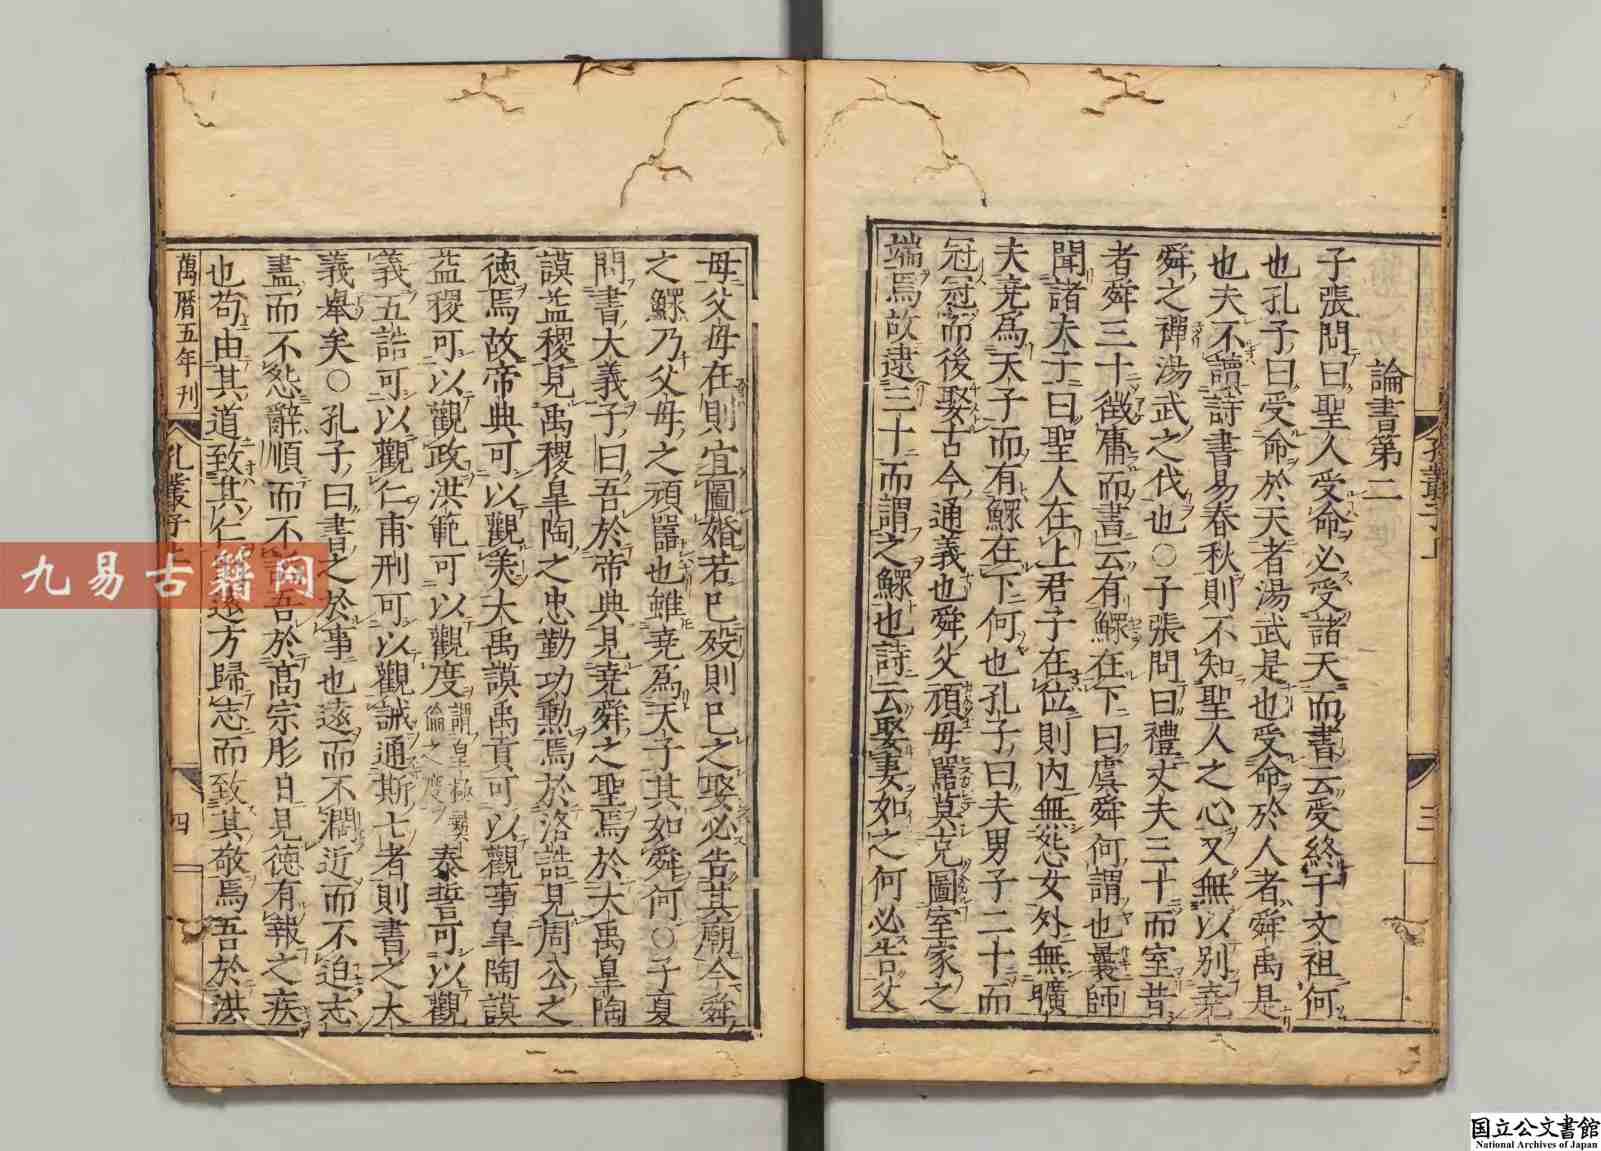 論書第二
子張問曰聖人受命必受諸天而書云受終于文祖何
也孔子曰受命於天者湯武是也受命於人者舜禹是
也夫不讀詩書易春秋則不知聖人之心又無以別堯
舜之禪湯武之伐也○子張問曰禮丈夫三十而室昔
者舜三十徴庸而書云有鰥在下曰虞舜何謂也曩師
聞諸夫子曰聖人在上君子在位則内無怨女外無曠
夫堯為天子而有鰥在下何也孔子曰夫男子二十而
冠冠而後娶古今通義也舜父頑母嚚莫克圖室家之
端焉故逮三十而謂之鰥也詩云娶妻如之何必告父
三
母父母在則宜圖婚若已殁則已之娶必告其廟今舜
之鰥乃父母之頑嚚也雖堯為天子其如舜何○子夏
問書大義子曰吾於帝典見堯舜之聖焉於大禹皐陶
謨益稷見禹稷皐陶之忠勤功勲焉於洛誥見周公之
徳焉故帝典可以觀美大禹謨禹貢可以觀事皐陶謨
益稷可以觀政洪範可以觀度謂皇極彛倫之度泰誓可以觀
義五誥可以觀仁甫刑可以觀誡通斯七者則書之大
義舉矣○孔子曰書之於事也遠而不濶近而不迫志
盡而不怨辭順而不吾於高宗肜日見徳有報之疾
也苟由其道致其仁遠方歸志而致其敬焉吾於洪
萬暦五年刊
孔叢子上
四
九易古籍网
国立公文書館
National Archives of Japan